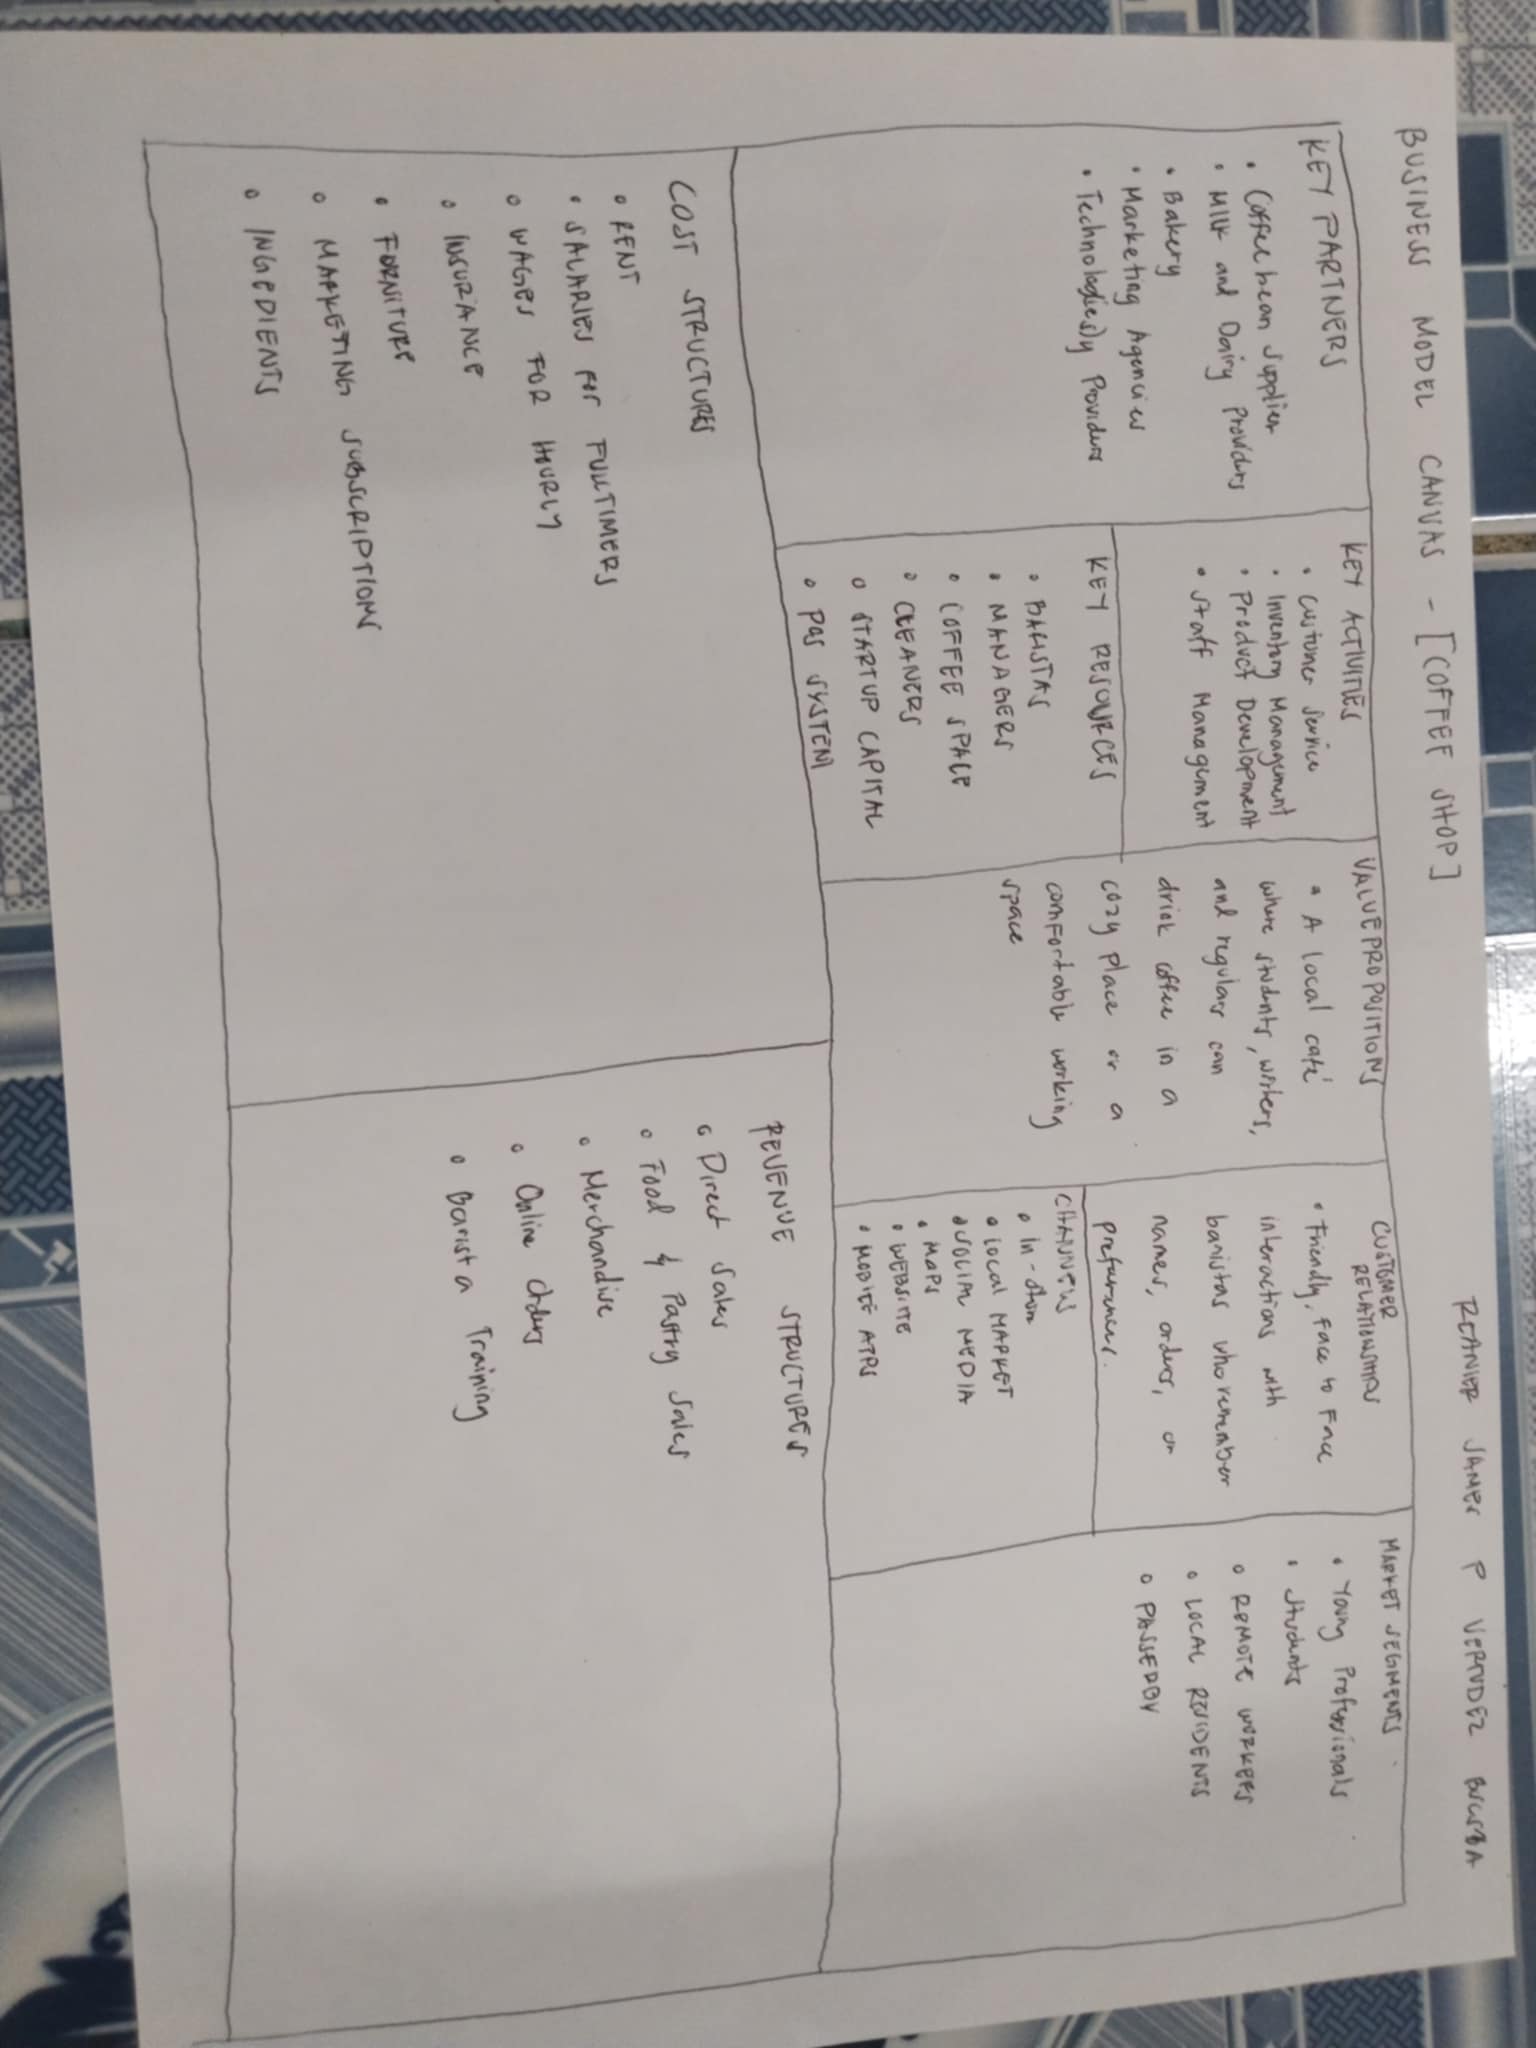 BUSINESS MODEL CANVAS - [COFFEE SHOP]
REANIER JAMES P VERTUDEZ
KEY PARTNERS
• Coffee bean supplier
• Milk and Dairy Providers
• Bakery
• Marketing Agencies
• Technolog(ies)y Providers
KEY ACTIVITIES
• Custumer Service
• Inventory Management
• Product Development
• Staff Management
KEY RESOURCES
• BARISTAS
• MANAGERS
• COFFEE SPACE
• CLEANERS
• STARTUP CAPITAL
• POS SYSTEM
VALUE PROPOSITIONS
• A local café
where students, workers,
and regulars can
drink coffee in a
cozy place or a
comfortable working
space
CUSTOMER
RELATIONSHIPS
• Friendly, Face to Face
interactions with
baristas who remember
names, orders, or
preferances.
CHANNELS
• In-store
• Local MARKET
• SOCIAL MEDIA
• MAPS
• WEBSITE
• MOBILE APPS
MARKET SEGMENTS
• Young Professionals
• Students
• REMOTE WORKERS
• LOCAL RESIDENTS
• PASSERBY
COST STRUCTURES
• RENT
• SALARIES FOR FULLTIMERS
• WAGES FOR HOURLY
• INSURANCE
• FORNITURE
• MARKETING SUBSCRIPTIONS
• INGEDIENTS
REVENUE STRUCTURES
• Direct Sales
• Food & Pastry Sales
• Merchandise
• Online Orders
• Barista Training